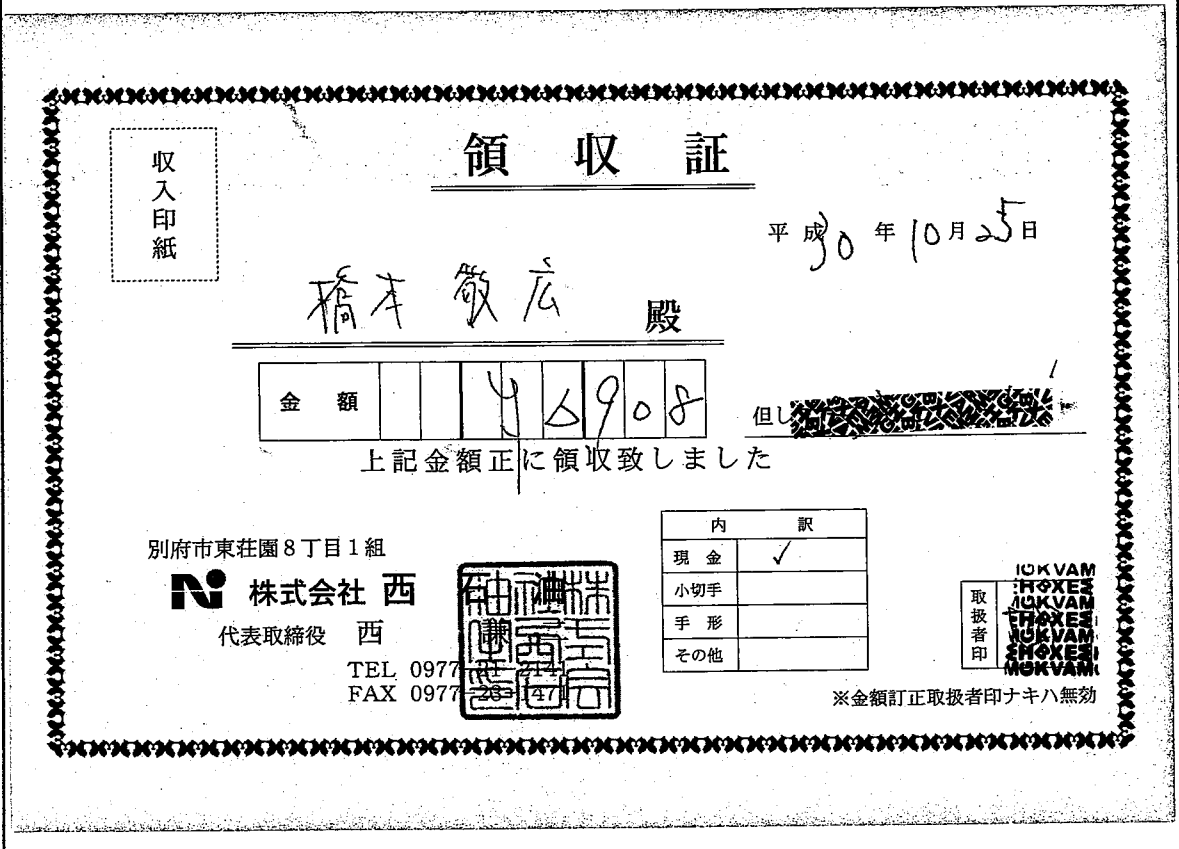 領収証
収入印紙
平成30年10月25日
橋本 敬広 殿
金額 ¥6908
但し
上記金額正に領収致しました
別府市東荘園8丁目1組
株式会社 西石油
代表取締役 西 謙
TEL 0977-21-2141
FAX 0977-23-1471
内訳
現金 ✓
小切手
手形
その他
取扱者印
※金額訂正取扱者印ナキハ無効